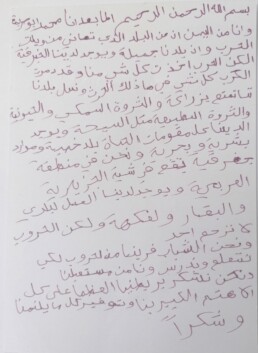 بسم الله الرحمن الرحيم اما بعد نا محمد
وانا من اليمن ان من البلد الذي تعاني من ويلات
الحرب وان بلادنا جميلة ويوجد لدينا
لكن الحرب اخذت كل شي منا وقد دمرت
الحرب كل شي في بلدنا
تتمتع بزراعة و الثروة السمكي و الحيونية
والثروة الطبيعة مثل السيحة و يوجد
لديها كل مقومات الحياة بلاد خصبة و موارد
بشرية و بحرية و نحن في منطقة
جغرفية تقع في شبه الجزيرة
العربية و يوجد لدينا العسل البلدي
و البقار و لفكهة و لكن الحروب
لا ترحم احد
ونحن الشباب هربنا من الحروب لكي
نتعلم وندرس ونامن مستقبلنا
ونحن نشكر بريطنيا العظما على كل
الاهتم الكبير بنا وتوفير كل ما يلزمنا
و شكراً